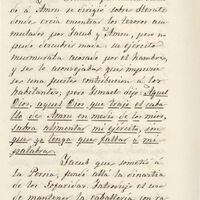 dó á Amou se dirigió sobre Herat
donde creía encontrar los tesoros acu-
mulados por Jacub y Amou, pero no
pudo descubrir nada. Su ejército
murmuraba acosado por el hambre,
y se le aconsejaba que impusie-
se una fuerte contribución á los
habitantes; pero Ismael dijo: Aquel
Dios, aquel Dios que trajo el caba-
llo de Amou en medio de los mios,
sabrá alimentar mi ejército, sin
que yo tenga que faltar á mi
palabra.
Yacub que sometió á
la Persia, fundó allí la dinastía
de los Soffaridas. Introdujo el uso
de mantener la caballería con ra-